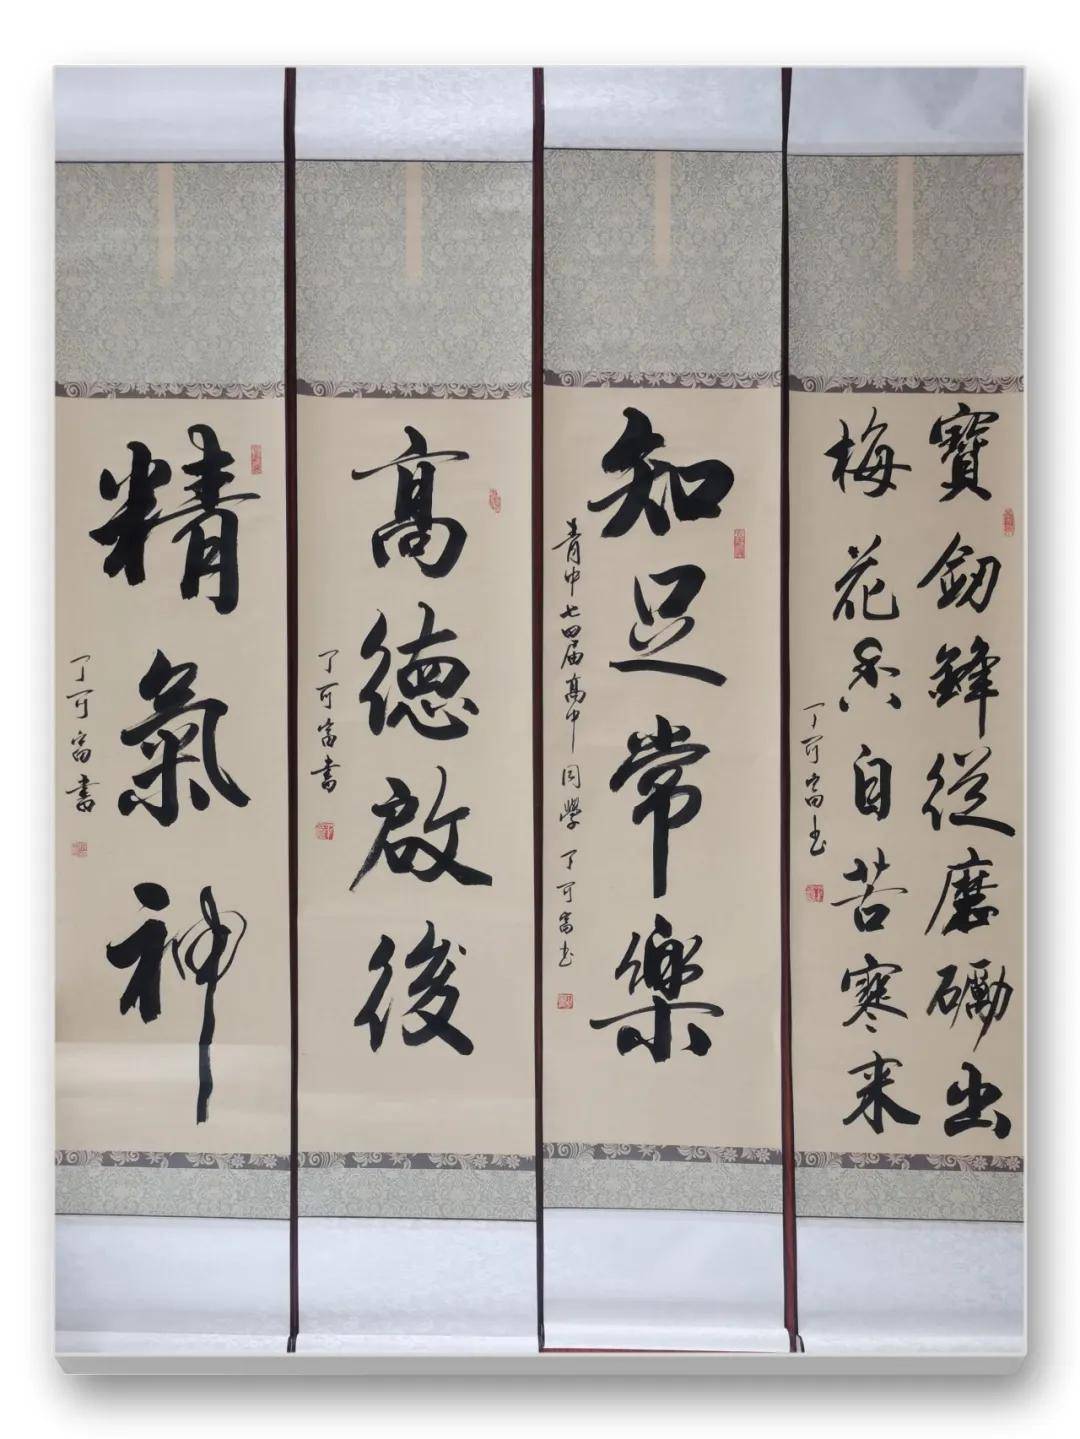 寶釼鋒從磨礪出
梅花香自苦寒来
丁可富书
知足常樂
青中七四届高中同學丁可富书
高德啟後
丁可富書
精氣神
丁可富書